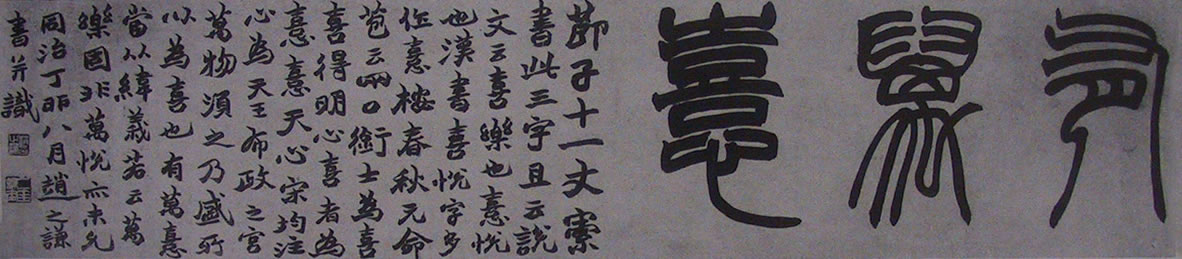 有萬憙
莭子十一丈索
書此三字且云說
文云喜樂也憙悅
也漢書喜悅字多
作憙桉春秋元命
苞云兩口銜士為喜
喜得明心喜者為
憙憙天心宋均注
心為天王布政之宮
萬物須之乃盛所
以為喜也有萬憙
當从緯義若云萬
樂固非萬悅亦未允
同治丁卯八月趙之謙
書并識